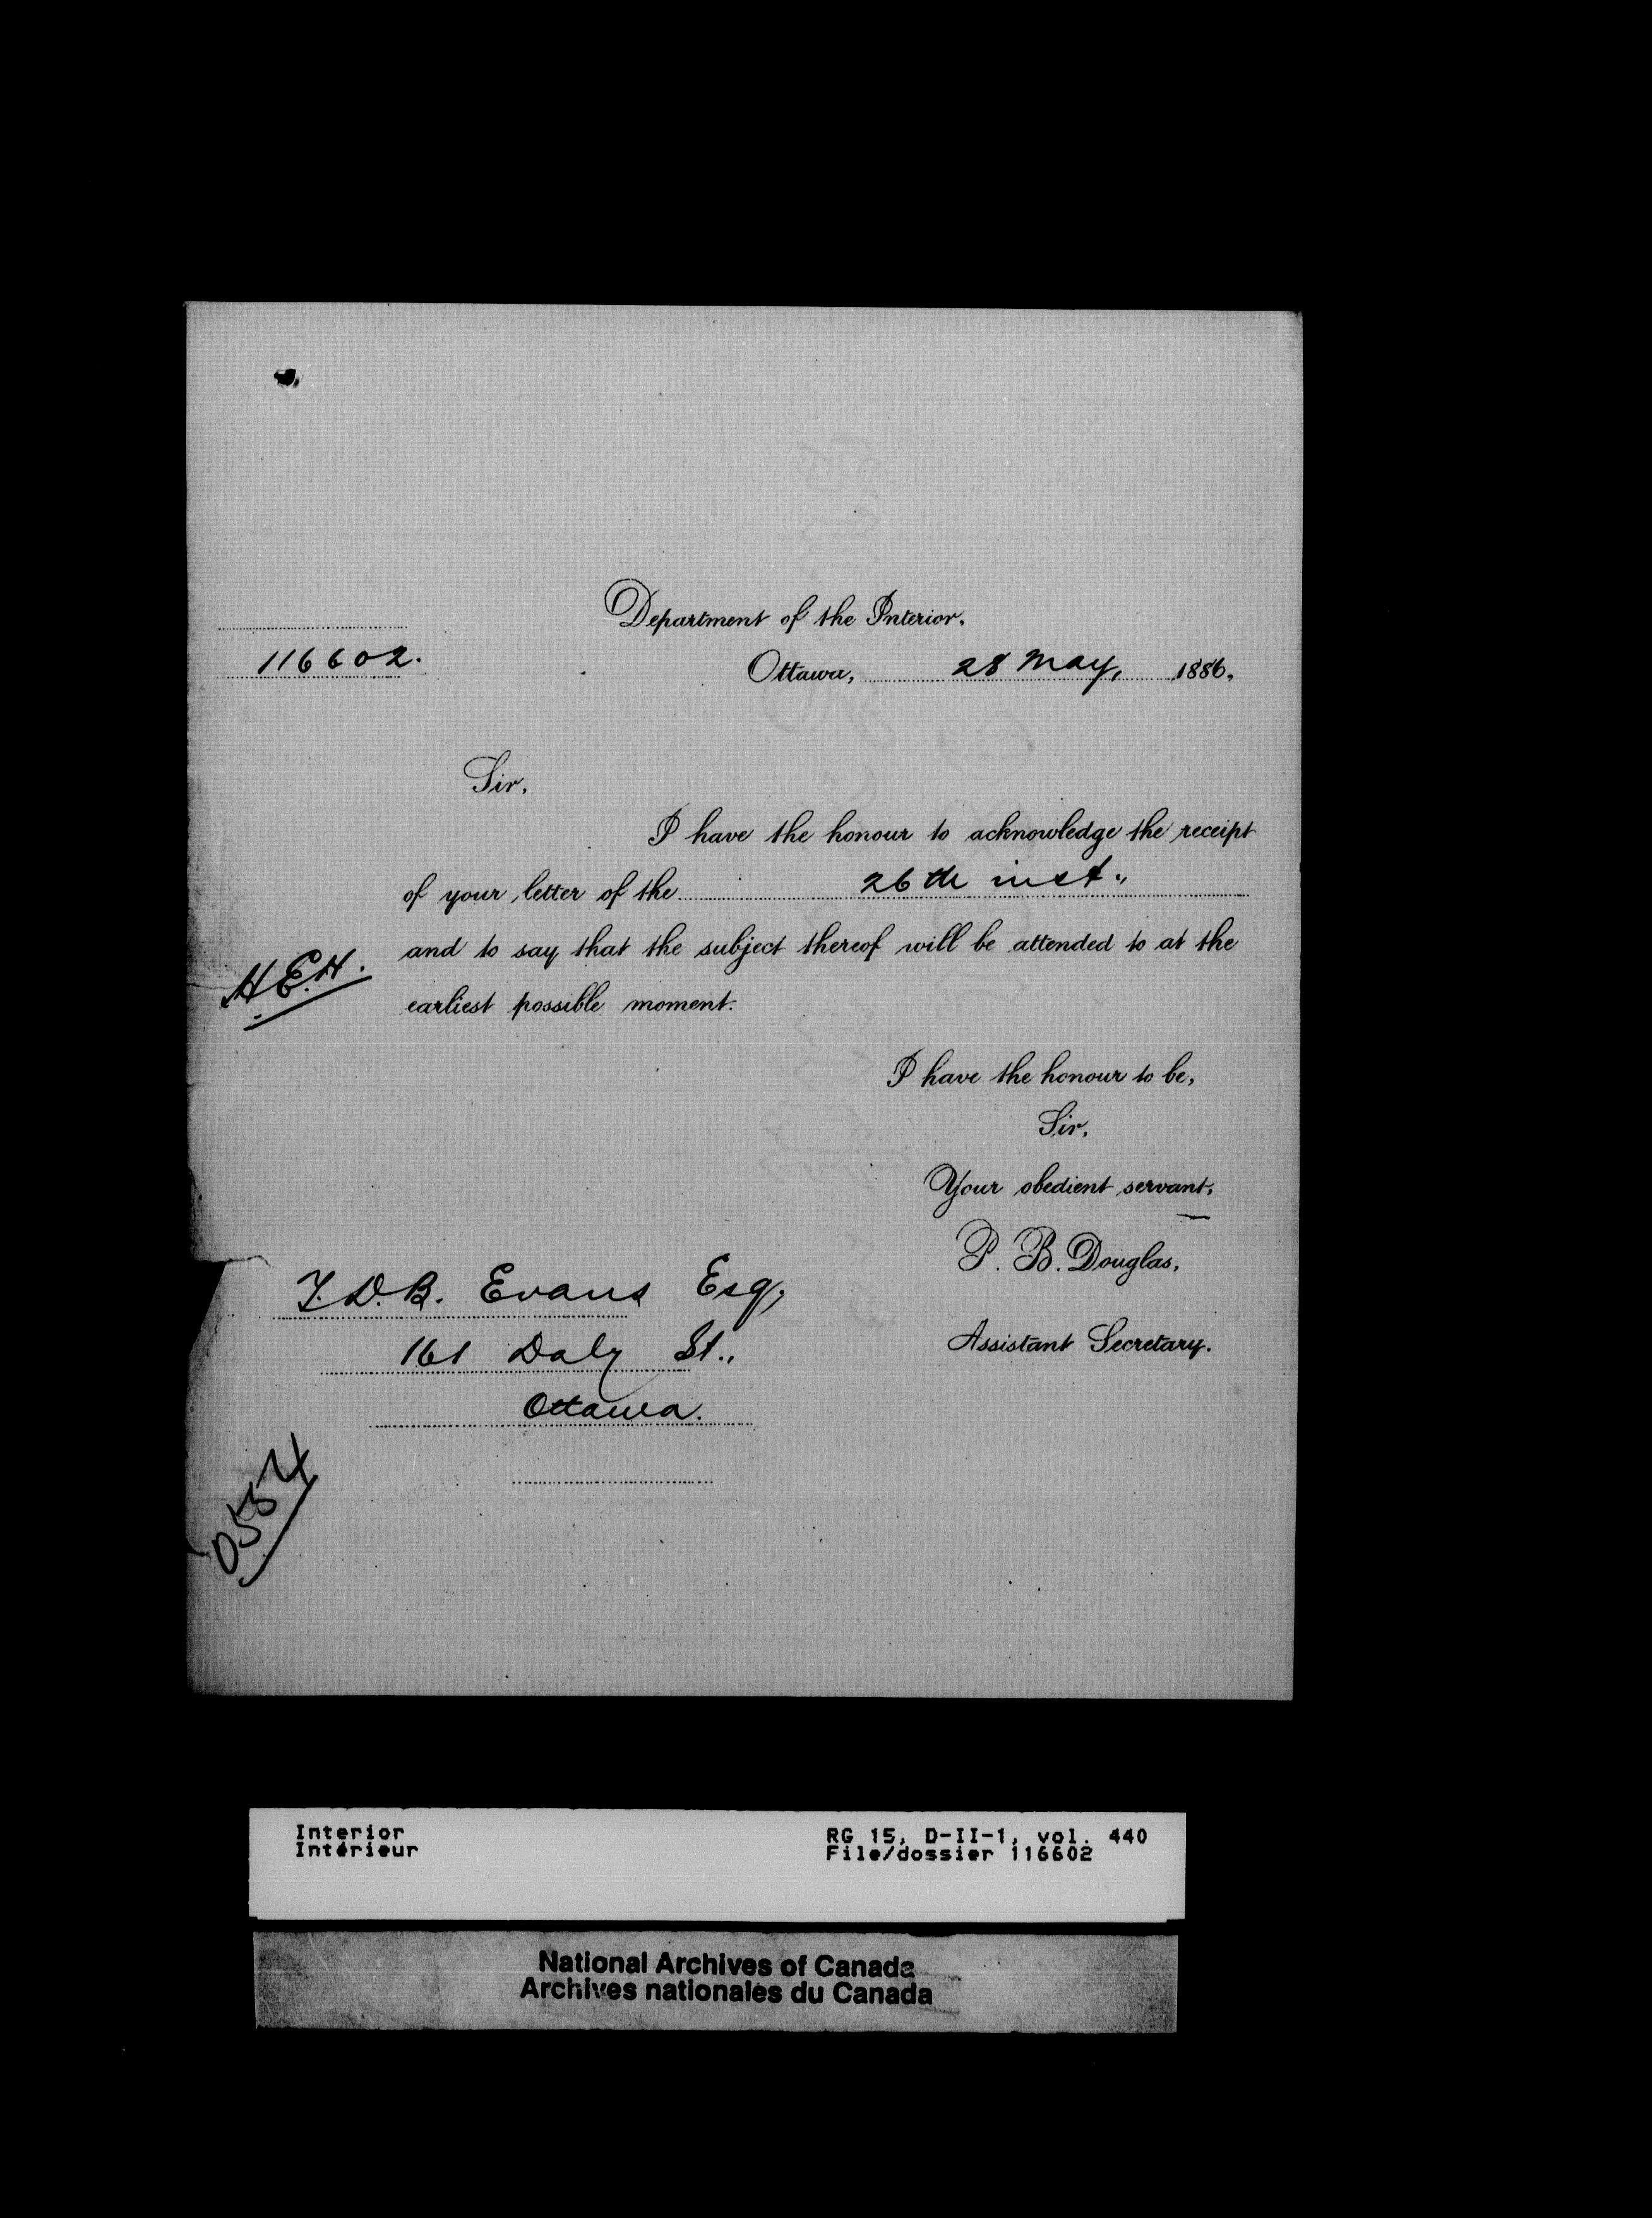 Department of the Interior.
116602.
Ottawa, 28 May, 1886.
Sir,
I have the honour to acknowledge the receipt
of your letter of the 26th inst.,
and to say that the subject thereof will be attended to at the
earliest possible moment.
H.E.H.
I have the honour to be,
Sir,
Your obedient servant,
P. B. Douglas,
Assistant Secretary.
T.D.B. Evans Esq,
161 Daly St.,
Ottawa.
Interior
Intérieur
RG 15, D-II-1, vol. 440
File/dossier 116602
National Archives of Canada
Archives nationales du Canada